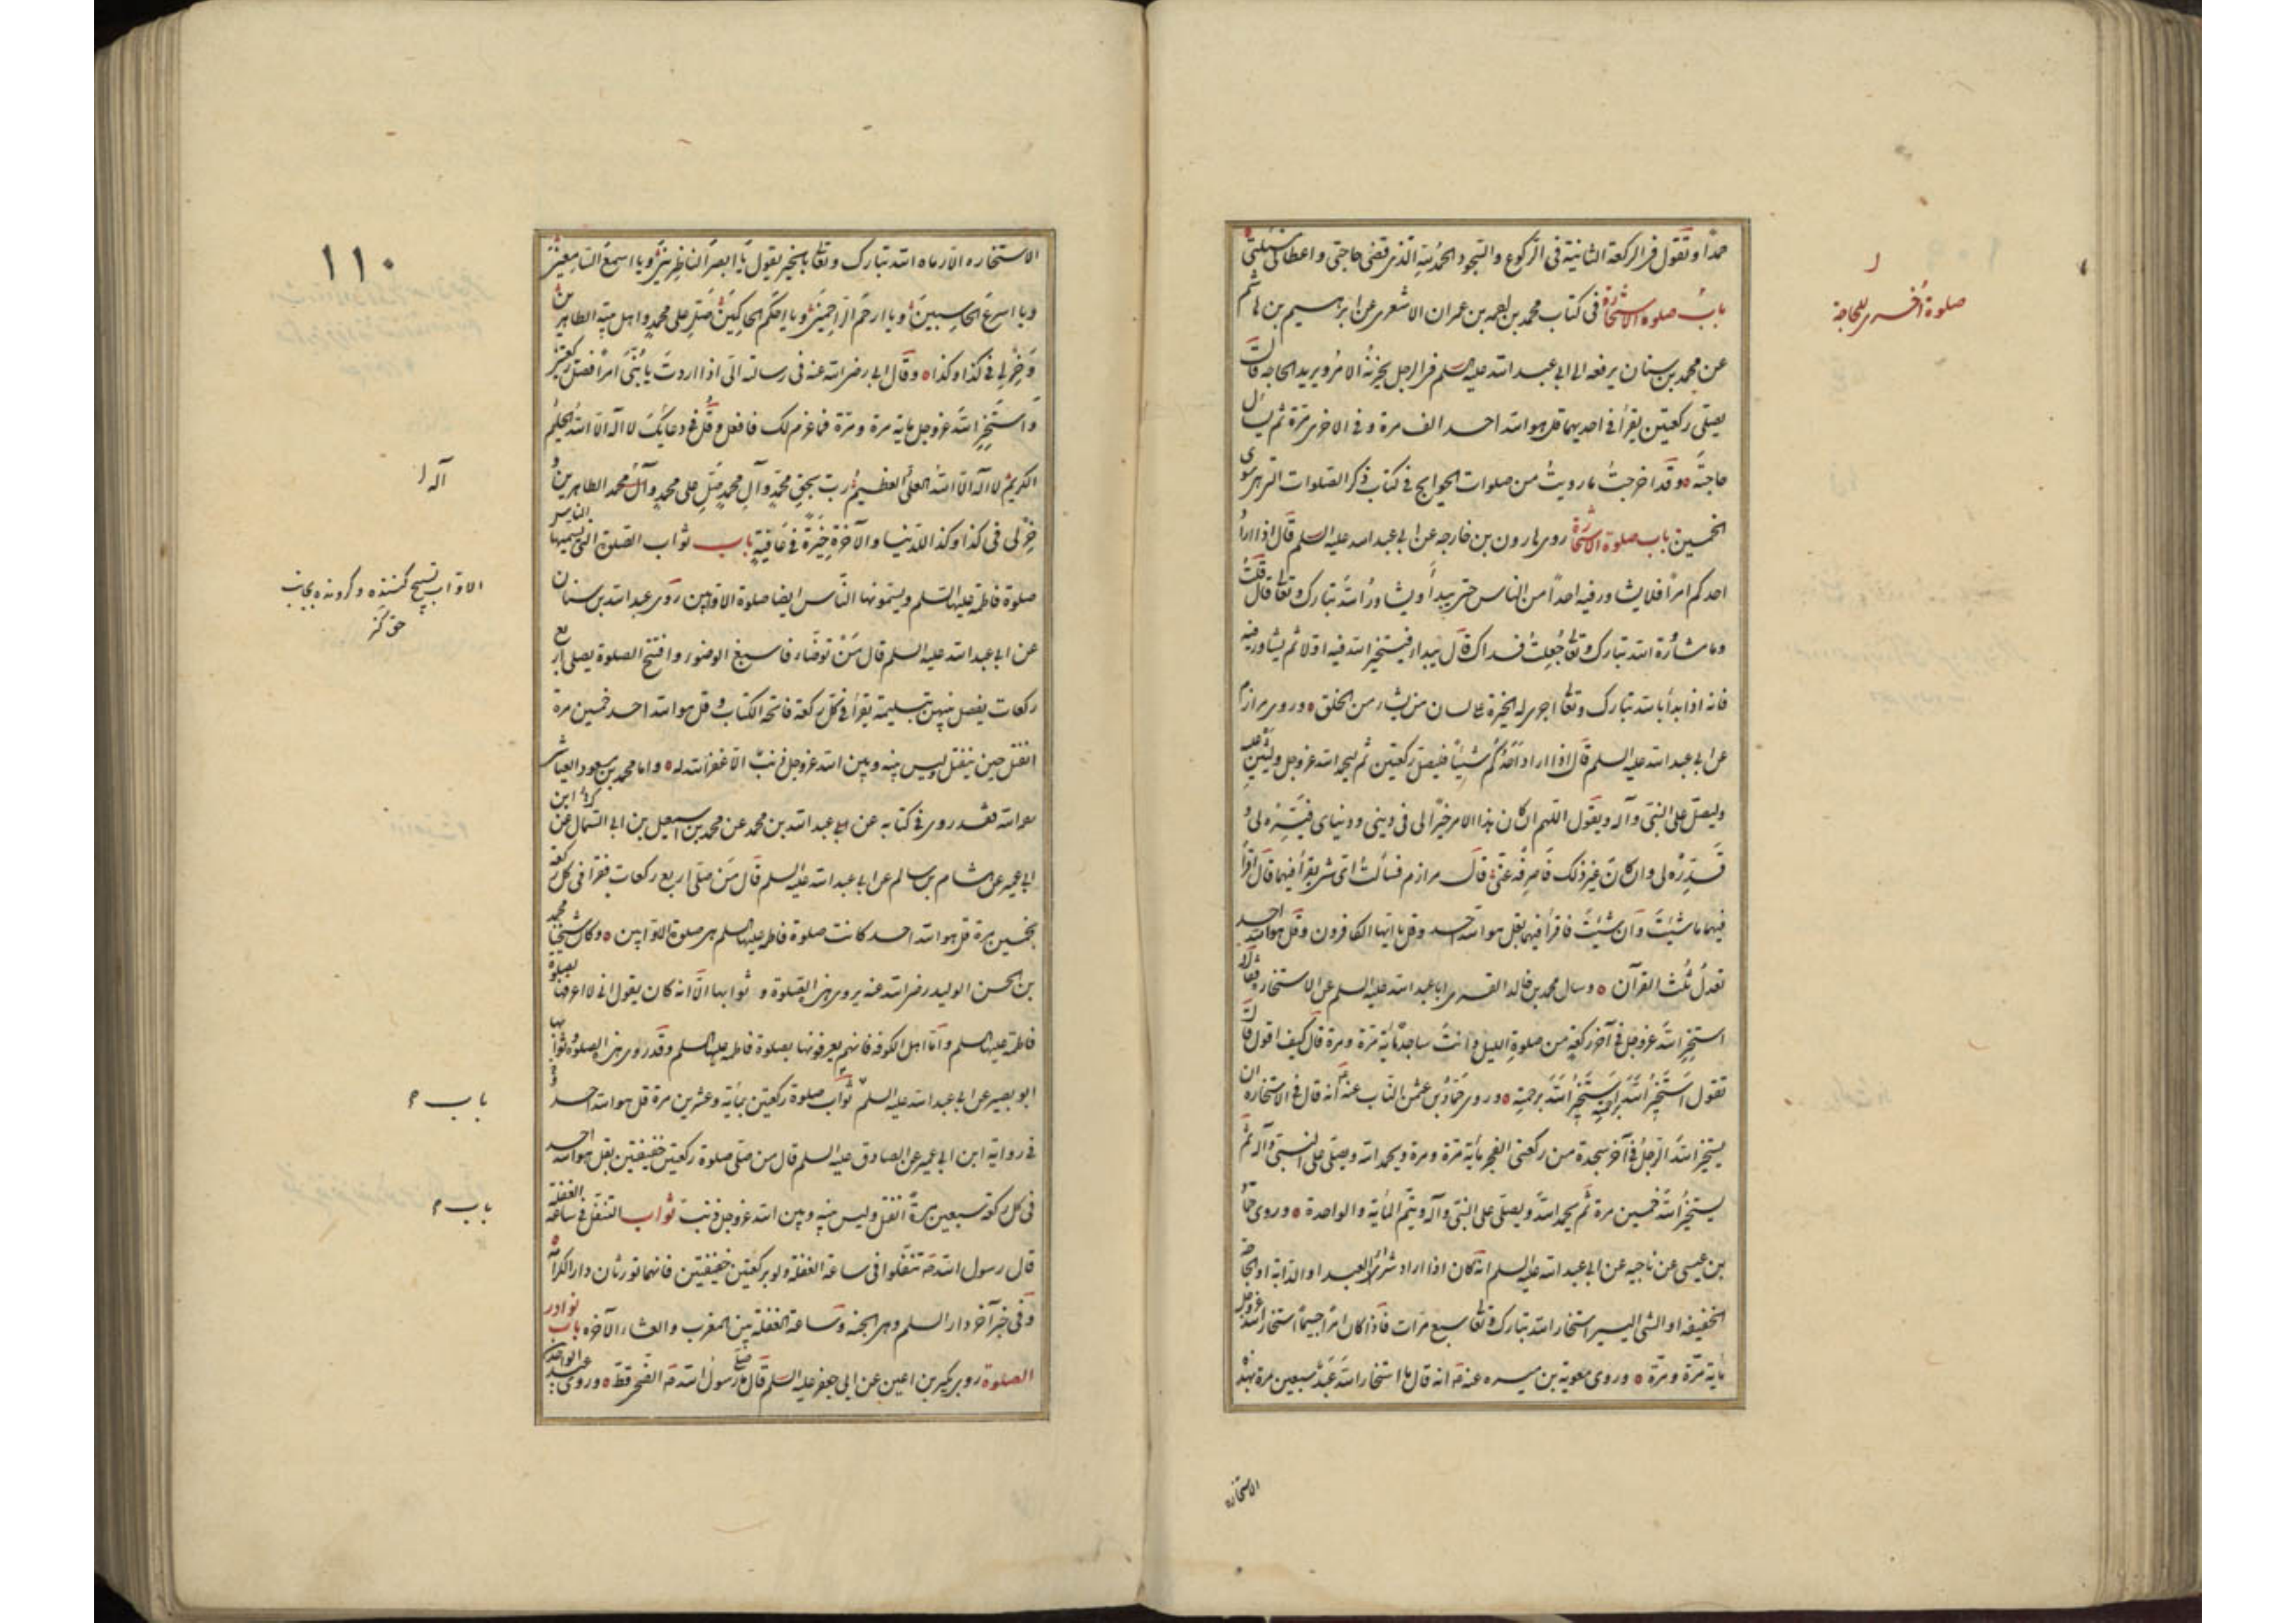 حمدا وتقول فى الركعة الثانية فى الركوع والسجود الحمد لله الذى قضى حاجتى واعطانى مسئلتى
باب صلوة الاستخارة فى كتاب محمد بن احمد بن عمران الاشعرى عن ابرهيم بن هاشم
عن محمد بن سنان يرفعه الى ابى عبد الله عليه السلم فى الرجل يحزنه الامر ويريد الحاجه قال
يصلى ركعتين يقرأ فى احديهما قل هو الله احد الف مرة وفى الاخرى مرة ثم يسأل
حاجته وقد اخرجت ما رويت من صلوات الحوايج فى كتاب ذكر الصلوات التى هى سوى
الخمسين باب صلوة الاستخارة روى هارون بن خارجه عن ابى عبد الله عليه السلم قال اذا اراد
احدكم امرا فلا يشاور فيه احدا من الناس حتى يبدأ ويشاور الله تبارك وتعا قال قلت
وما مشاورة الله تبارك وتعا جعلت فداك قال يبداء فيستخير الله فيه اولا ثم يشاور فيه
فانه اذا بدأ بالله تبارك وتعا اجرى له الخيرة على لسان من يشاء من الخلق وروى مرازم
عن ابى عبد الله عليه السلم قال اذا اراد احدكم شيئا فليصل ركعتين ثم ليحمد الله عز وجل وليثن عليه
وليصل على النبى وآله ويقول اللهم ان كان هذا الامر خيرا لى فى دينى ودنياى فيسره لى و
قدره لى وان كان غير ذلك فاصرفه عنى قال مرازم فسألت اى شى يقرأ فيهما قال اقرأ
فيهما ما شئت وان شئت فاقرأ فيهما بقل هو الله احد وقل يا ايها الكافرون وقل هو الله احد
تعدل ثلث القرآن وسال محمد بن خالد القسرى ابا عبد الله عليه السلم عن الاستخارة فقال
استخر الله عز وجل فى آخر ركعة من صلوة الليل وانت ساجد مائة مرة ومرة قال كيف اقول قال
تقول استخير الله برحمته استخير الله برحمته وروى حماد بن عثمن الناب عنه انه قال فى الاستخاره ان
يستخير الله الرجل فى آخر سجدة من ركعتى الفجر مائة مرة ومرة ويحمد الله ويصلى على النبى وآله ثم
يستخير الله خمسين مرة ثم يحمد الله ويصلى على النبى وآله ويتم المائة والواحدة وروى حماد
بن عيسى عن ناجيه عن ابى عبد الله عليه السلم انه كان اذا اراد شراء العبد او الدابة او الحاجة
الخفيفه او الشى اليسير استخار الله تبارك وتعا سبع مرات فاذا كان امرا جسيما استخار الله عز وجل
مائة مرة ومرة وروى معوية بن ميسره عنه انه قال ما استخار الله عبد سبعين مرة بهذه
الاستخاره
صلوة اخرى للحاجة
١١٠
الاستخاره الا رماه الله تبارك وتعا بالخير يقول يا ابصر الناظرين ويا اسمع السامعين
ويا اسرع الحاسبين ويا ارحم الراحمين ويا احكم الحاكمين صل على محمد واهل بيته الطاهرين
وخر لى فى كذا وكذا وقال ابى رضى الله عنه فى رسالته الى اذا اردت يا بنى امرا فصل ركعتين
واستخر الله عز وجل مائة مرة ومرة فما عزم لك فافعل وقل فى دعائك لا اله الا الله الحليم
الكريم لا اله الا الله العلى العظيم رب بحق محمد وآل محمد صل على محمد وآل محمد الطاهرين و
خر لى فى كذا وكذا للدنيا والآخرة خيرة فى عافية باب ثواب الصلوة التى يسميها الناس
صلوة فاطمه عليها السلم ويسمونها الناس ايضا صلوة الاوابين روى عبد الله بن سنان
عن ابى عبد الله عليه السلم قال من توضاء فاسبغ الوضوء وافتتح الصلوة يصلى اربع
ركعات يفصل بينهن بتسليمة يقرأ فى كل ركعة فاتحة الكتاب وقل هو الله احد خمسين مرة
انفتل حين ينفتل وليس بينه وبين الله عز وجل ذنب الا غفر الله له واما محمد بن مسعود العياشى
رحمه الله فقد روى فى كتابه عن ابى عبد الله بن محمد عن محمد بن اسمعيل بن ابى السمال عن ابن
ابى عمير عن هشام بن سالم عن ابى عبد الله عليه السلم قال من صلى اربع ركعات فقرا فى كل ركعة
بخمسين مرة قل هو الله احد كانت صلوة فاطمه عليها السلم هى صلوة الاوابين وكان شيخنا محمد
بن الحسن الوليد رضى الله عنه يروى هذه الصلوة و ثوابها الا انه كان يقول انى لا اعرفها بصلوة
فاطمة عليها السلم واما اهل الكوفه فانهم يعرفونها بصلوة فاطمه عليها السلم وقد روى هذه الصلوة وثوابها
ابو بصير عن ابى عبد الله عليه السلم ثواب صلوة ركعتين بمائة وعشرين مرة قل هو الله احد
فى رواية ابن ابى عمير عن الصادق عليه السلم قال من صلى صلوة ركعتين خفيفتين بقل هو الله احد
فى كل ركعة سبعين مرة انفتل وليس بينه وبين الله عز وجل ذنب ثواب التنفل فى ساعة الغفلة
قال رسول الله صه تنفلوا فى ساعة الغفلة ولو بركعتين خفيفتين فانهما تورثان دار الكرامة
وفى خبر آخر دار السلم وهى الجنه وساعة الغفلة بين المغرب والعشاء الآخره باب نوادر
الصلوة روى بكير بن اعين عن ابى جعفر عليه السلم قال ما صلى رسول الله صه الضحى قط وروى عبد الواحد بن
آله
الاواب تسبيح كننده وكرونده بجانب
حق كنز
باب
باب